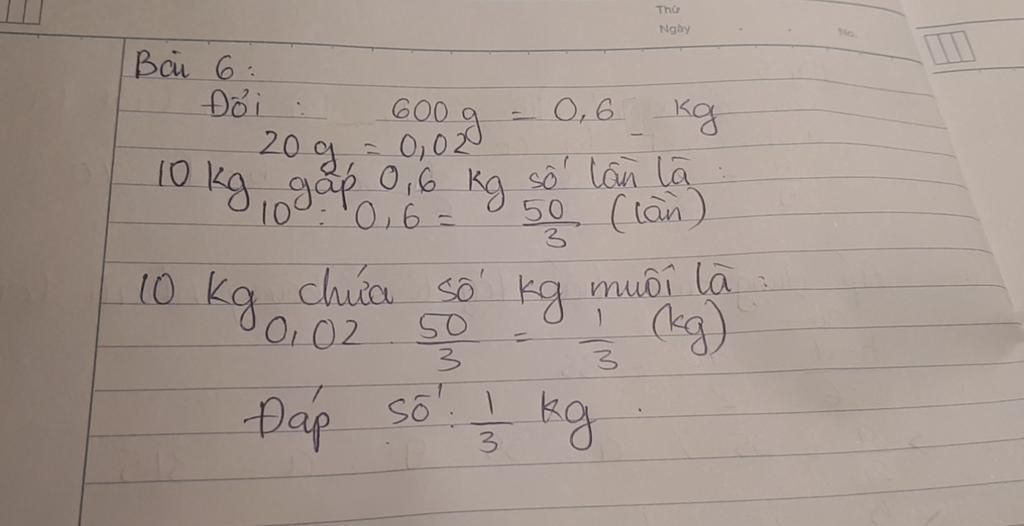 Thứ
Ngày
No.
Bài 6:
Đổi: 600g = 0,6 kg
20g = 0,02
10 kg gấp 0,6 kg số lần là:
10 : 0,6 = 50/3 (lần)
10 kg chứa số kg muối là:
0,02 . 50/3 = 1/3 (kg)
Đáp số: 1/3 kg.